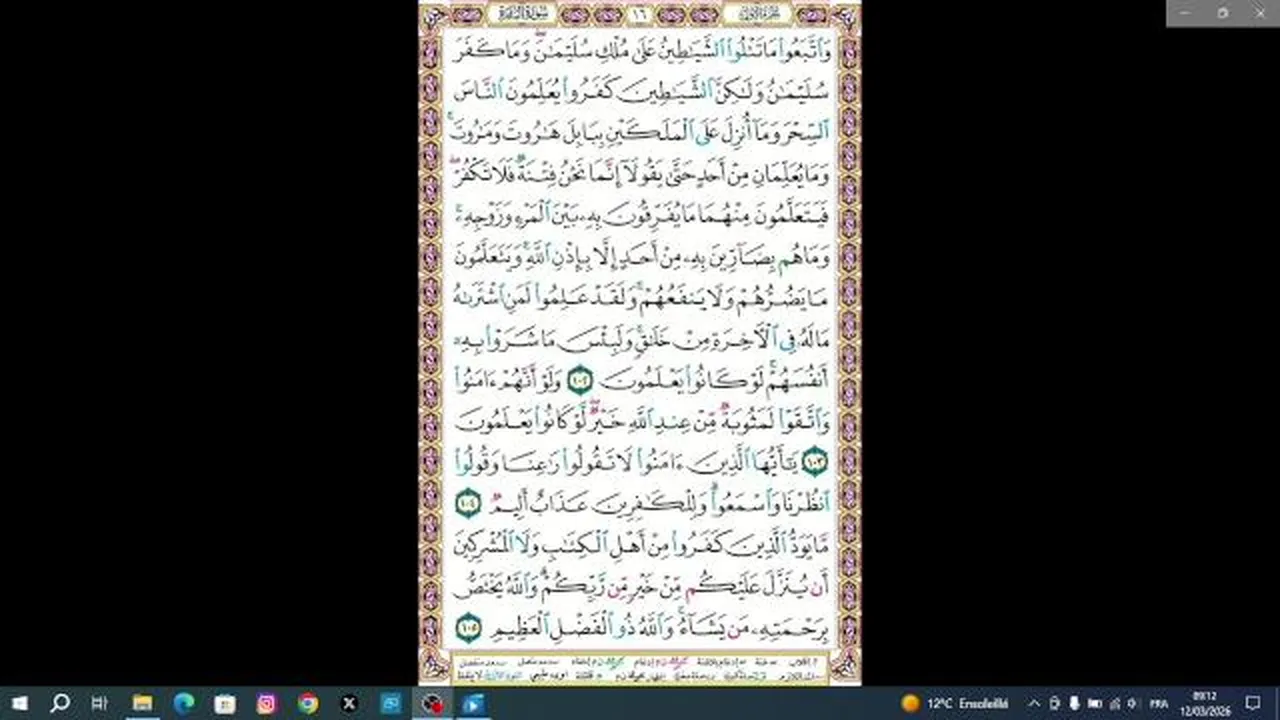 سورة البقرة ١٦ الجزء الأول
وَٱتَّبَعُوا۟ مَا تَتْلُوا۟ ٱلشَّيَـٰطِينُ عَلَىٰ مُلْكِ سُلَيْمَـٰنَ ۖ وَمَا كَفَرَ
سُلَيْمَـٰنُ وَلَـٰكِنَّ ٱلشَّيَـٰطِينَ كَفَرُوا۟ يُعَلِّمُونَ ٱلنَّاسَ
ٱلسِّحْرَ وَمَآ أُنزِلَ عَلَى ٱلْمَلَكَيْنِ بِبَابِلَ هَـٰرُوتَ وَمَـٰرُوتَ ۚ
وَمَا يُعَلِّمَانِ مِنْ أَحَدٍ حَتَّىٰ يَقُولَآ إِنَّمَا نَحْنُ فِتْنَةٌ فَلَا تَكْفُرْ ۖ
فَيَتَعَلَّمُونَ مِنْهُمَا مَا يُفَرِّقُونَ بِهِۦ بَيْنَ ٱلْمَرْءِ وَزَوْجِهِۦ ۚ
وَمَا هُم بِضَآرِّينَ بِهِۦ مِنْ أَحَدٍ إِلَّا بِإِذْنِ ٱللَّهِ ۚ وَيَتَعَلَّمُونَ
مَا يَضُرُّهُمْ وَلَا يَنفَعُهُمْ ۚ وَلَقَدْ عَلِمُوا۟ لَمَنِ ٱشْتَرَىٰهُ
مَا لَهُۥ فِى ٱلْـَٔاخِرَةِ مِنْ خَلَـٰقٍ ۚ وَلَبِئْسَ مَا شَرَوْا۟ بِهِۦٓ
أَنفُسَهُمْ ۚ لَوْ كَانُوا۟ يَعْلَمُونَ ١٠٢ وَلَوْ أَنَّهُمْ ءَامَنُوا۟
وَٱتَّقَوْا۟ لَمَثُوبَةٌ مِّنْ عِندِ ٱللَّهِ خَيْرٌ ۖ لَّوْ كَانُوا۟ يَعْلَمُونَ
١٠٣ يَـٰٓأَيُّهَا ٱلَّذِينَ ءَامَنُوا۟ لَا تَقُولُوا۟ رَٰعِنَا وَقُولُوا۟
ٱنظُرْنَا وَٱسْمَعُوا۟ ۗ وَلِلْكَـٰفِرِينَ عَذَابٌ أَلِيمٌ ١٠٤
مَّا يَوَدُّ ٱلَّذِينَ كَفَرُوا۟ مِنْ أَهْلِ ٱلْكِتَـٰبِ وَلَا ٱلْمُشْرِكِينَ
أَن يُنَزَّلَ عَلَيْكُم مِّنْ خَيْرٍ مِّن رَّبِّكُمْ ۗ وَٱللَّهُ يَخْتَصُّ
بِرَحْمَتِهِۦ مَن يَشَآءُ ۚ وَٱللَّهُ ذُو ٱلْفَضْلِ ٱلْعَظِيمِ ١٠٥
12°C Ensoleillé FRA 09:12
12/03/2026